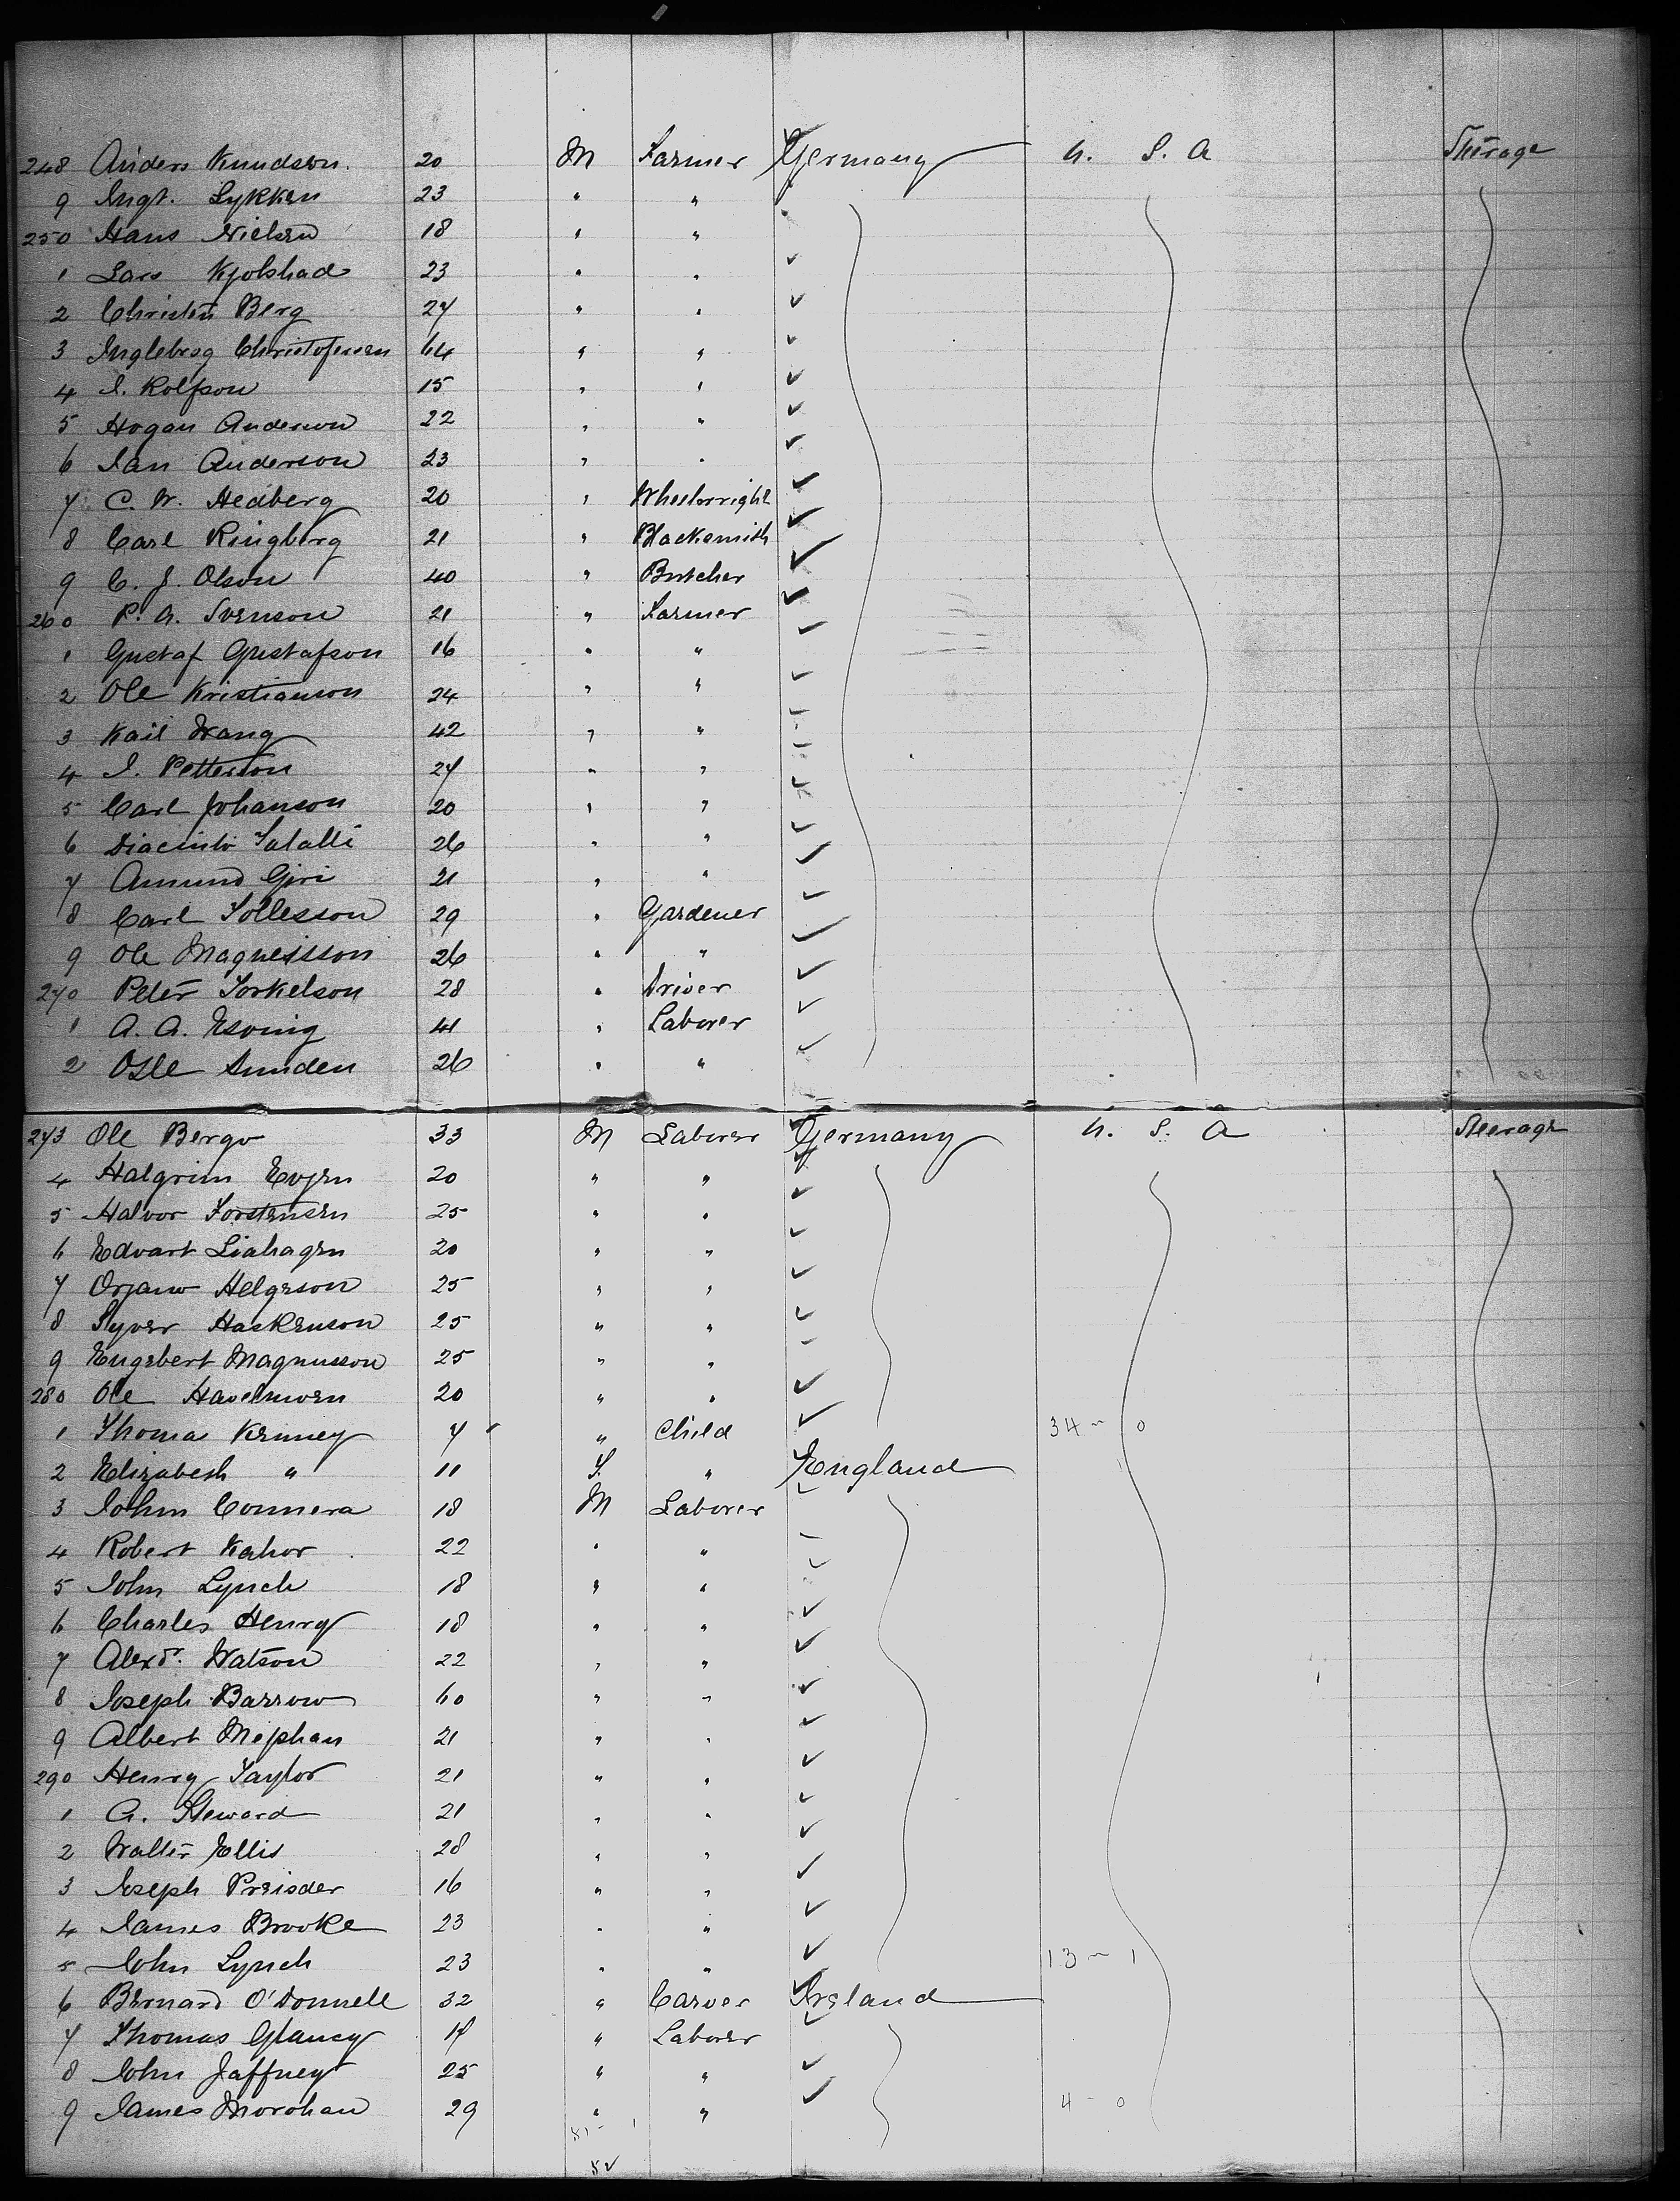 248 Anders Knudson. 20 M Farmer Germany U. S. A Steerage
9 Ingt. Lykken 23 " "
250 Hans Nielsen 18 " "
1 Lars Kjolshad 23 " "
2 Christen Berg 27 " "
3 Inglebrog Christofersen 64 " "
4 I. Rolfson 15 " "
5 Hogan Anderson 22 " "
6 Jan Anderson 23 " "
7 C. W. Hedberg 20 " Wheelwright
8 Carl Ringberg 21 " Blacksmith
9 C. J. Olson 40 " Butcher
260 P. A. Svenson 21 " Farmer
1 Gustaf Gustafson 16 " "
2 Ole Kristianson 24 " "
3 Kail Wang 42 " "
4 I. Petterson 27 " "
5 Carl Johanson 20 " "
6 Diacinto 26 " "
7 Amund Gjri 21 " "
8 Carl Tollesson 29 " Gardener
9 Ole Magneisson 26 " "
270 Peter Torkelson 28 " Driver
1 A. A. Esving 41 " Laborer
2 Oslle Sunden 26 " "
273 Ole Bergo 33 M Laborer Germany U. S. A Steerage
4 Halgrim Evjen 20 " "
5 Halvor Torstensen 25 " "
6 Edvart Liahagen 20 " "
7 Orjano Helgeson 25 " "
8 Syver Haskenson 25 " "
9 Engebert Magnusson 25 " "
280 Ole Havelmoen 20 " "
1 Thoma Kenney 7 " Child 34 - 0
2 Elizabeth " 11 F. " England
3 John Connera 18 M Laborer
4 Robert Kahor 22 " "
5 John Lynch 18 " "
6 Charles Henry 18 " "
7 Alexdr. Watson 22 " "
8 Joseph Barrow 60 " "
9 Albert Mephan 21 " "
290 Henry Taylor 21 " "
1 A. Steward 21 " "
2 Walter Ellis 28 " "
3 Joseph Preisder 16 " "
4 James Brooke 23 " "
5 John Lynch 23 " " 13 - 1
6 Bernard O'Donnell 32 " Carver Ireland
7 Thomas Glancy 17 " Laborer
8 John Jaffney 25 " "
9 James Morohan 29 " " 4 - 0
51 - 1
52